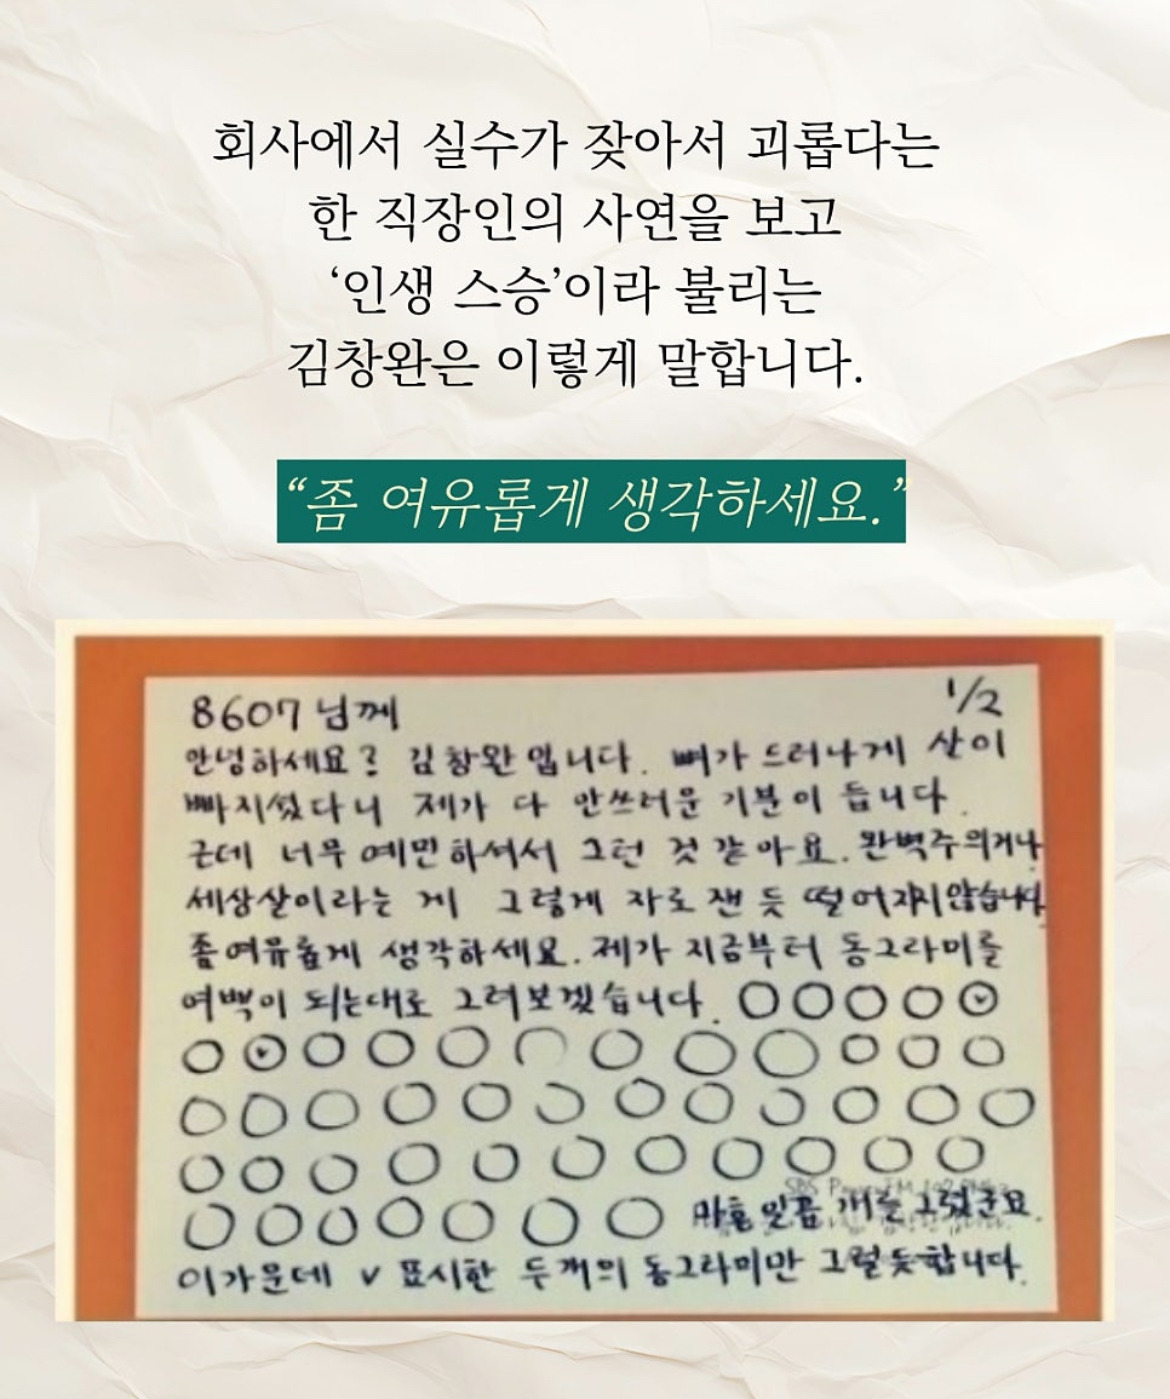 회사에서 실수가 잦아서 괴롭다는
한 직장인의 사연을 보고
‘인생 스승’이라 불리는
김창완은 이렇게 말합니다.
“좀 여유롭게 생각하세요.”
8607 님께 1/2
안녕하세요? 김창완입니다. 뼈가 드러나게 살이
빠지셨다니 제가 다 안쓰러운 기분이 듭니다.
근데 너무 예민하셔서 그런 것 같아요. 완벽주의거나
세상살이라는 게 그렇게 자로 잰 듯 떨어지지 않습니다.
좀 여유롭게 생각하세요. 제가 지금부터 동그라미를
여백이 되는대로 그려보겠습니다.
마흔 일곱 개를 그렸군요.
이가운데 v 표시한 두개의 동그라미만 그럴듯합니다.